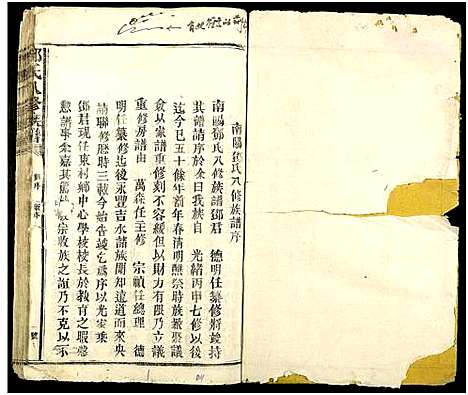 南陽鄧氏八修族譜序
南陽鄧氏八修族譜鄧君　德明任纂修將竣持
其譜請序於余曰我族自　光緒丙申七修以後
迄今已五十餘年前年春清明醮祭時族眾聚議
僉以家譜重修刻不容緩但以財力有限乃立議
重修房譜由　萬森任主修　宗楨任總理　德
明任纂修迄後永豐吉水諸族聞知遠道而來央
請聯修歷時三載今始告竣乞爲序以光家乘
鄧君現任東村鄉中心學校校長於教育之暇襄
譜事余嘉其篤 宗收族之誼乃不克以示
鄧氏八修族譜